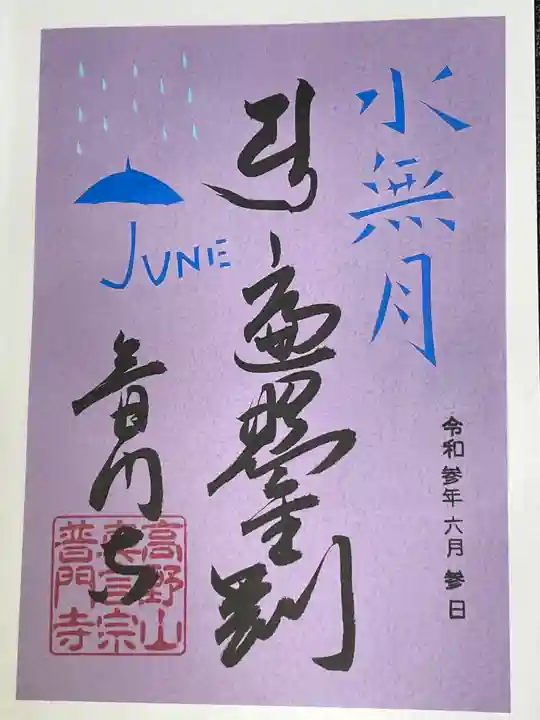 水無月
令和参年六月参日
遍照金剛
JUNE
普門寺
高野山
真言宗
普門寺